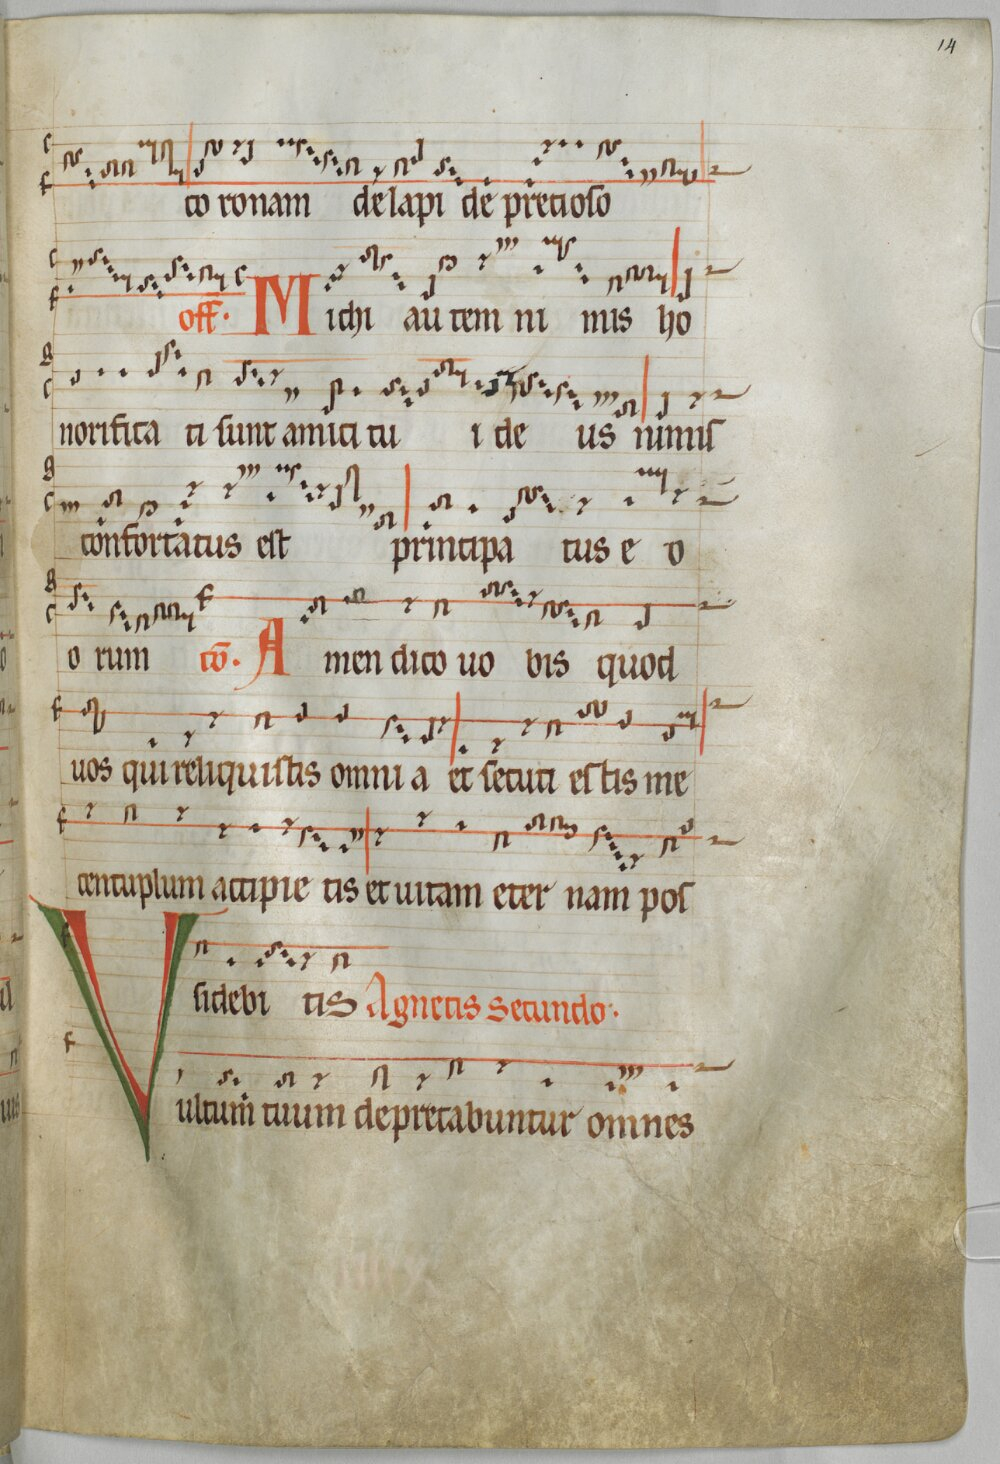 14
co ronam de lapi de precioso
off. Michi autem ni mis ho
norifica ti sunt amici tu i de us nimis
confortatus est principa tus e o
o rum co. Amen dico uo bis quod
uos qui reliquistis omni a et secuti estis me
centuplum accipie tis et uitam eter nam pos
sidebi tis Agnetis secundo.
Vultum tuum deprecabuntur omnes